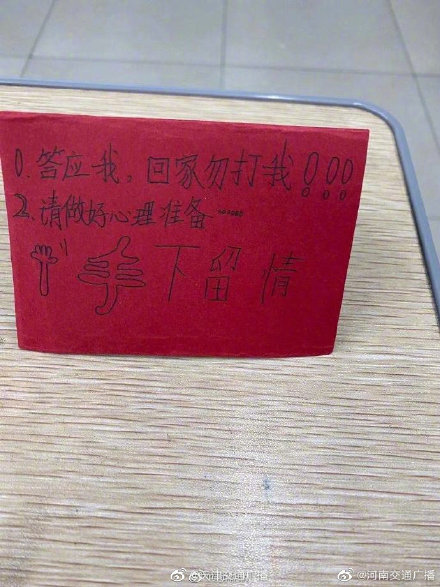 1.答应我，回家勿打我！！！
2.请做好心理准备……
手下留情
@天津交通广播 @河南交通广播